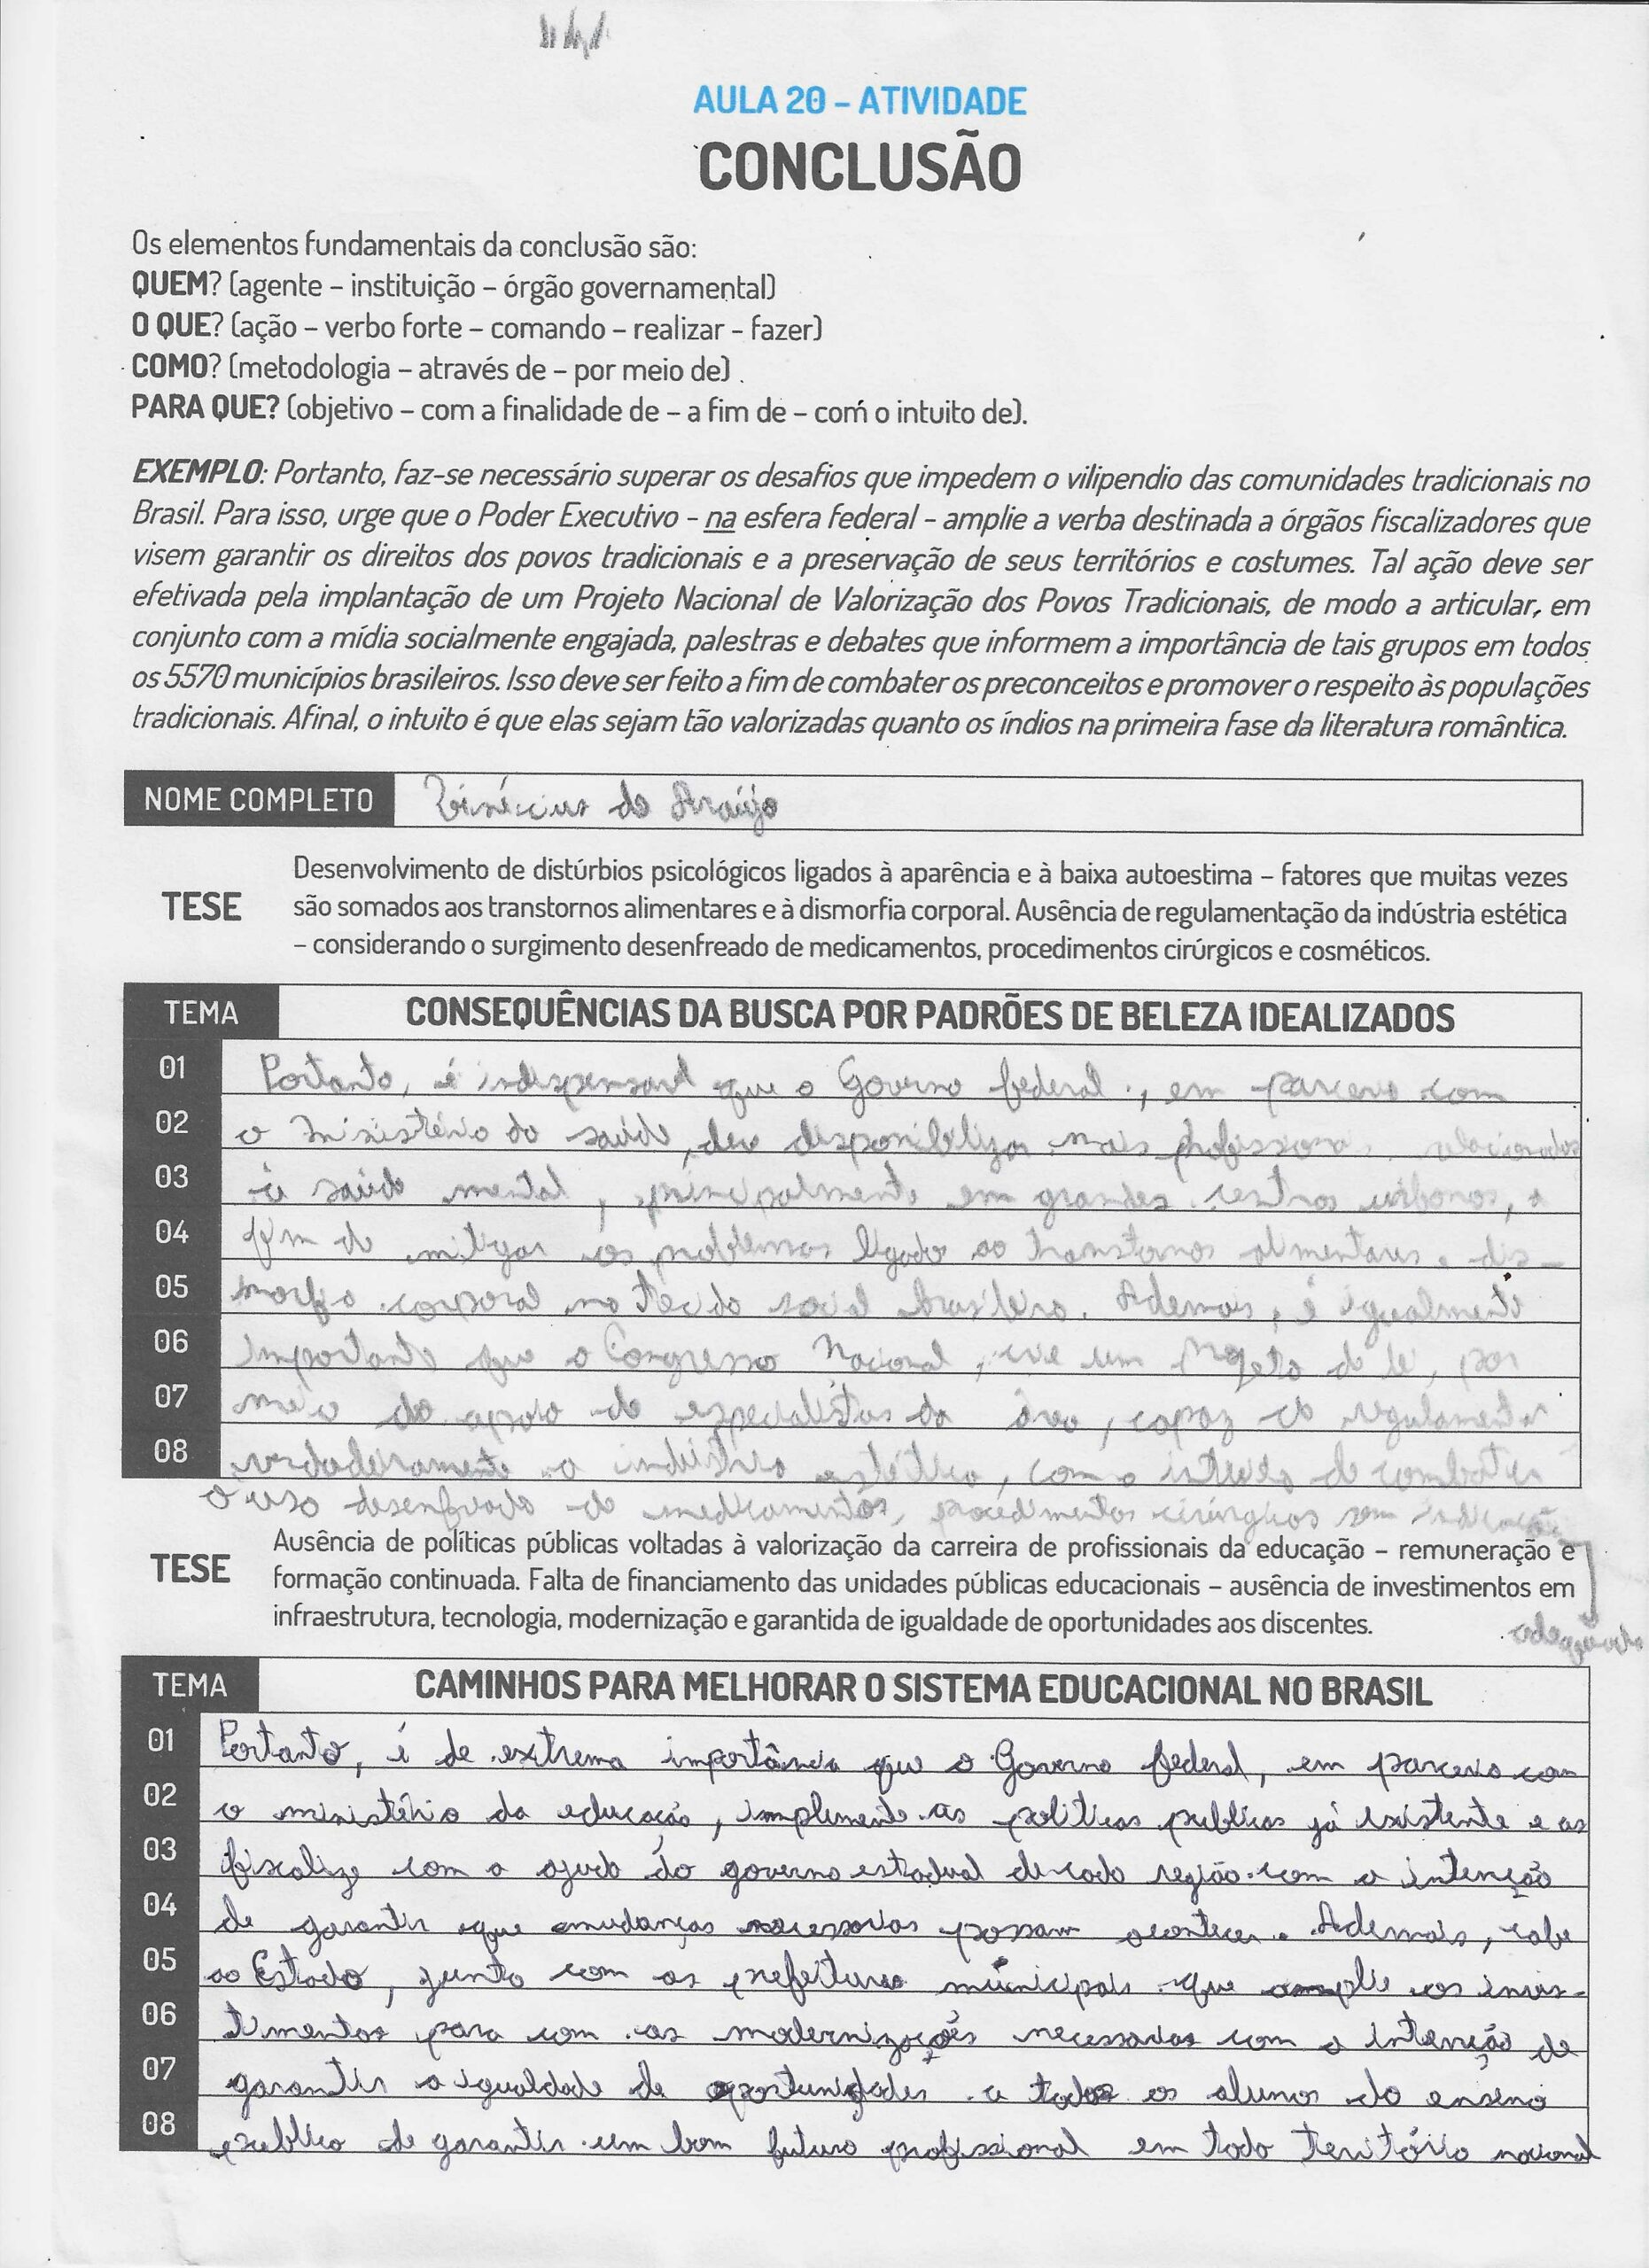 AULA 20 – ATIVIDADE
CONCLUSÃO
Os elementos fundamentais da conclusão são:
QUEM? (agente – instituição – órgão governamental)
O QUE? (ação – verbo forte – comando – realizar – fazer)
COMO? (metodologia – através de – por meio de)
PARA QUE? (objetivo – com a finalidade de – a fim de – com o intuito de).
EXEMPLO: Portanto, faz-se necessário superar os desafios que impedem o vilipendio das comunidades tradicionais no
Brasil. Para isso, urge que o Poder Executivo – na esfera federal – amplie a verba destinada a órgãos fiscalizadores que
visem garantir os direitos dos povos tradicionais e a preservação de seus territórios e costumes. Tal ação deve ser
efetivada pela implantação de um Projeto Nacional de Valorização dos Povos Tradicionais, de modo a articular, em
conjunto com a mídia socialmente engajada, palestras e debates que informem a importância de tais grupos em todos
os 5570 municípios brasileiros. Isso deve ser feito a fim de combater os preconceitos e promover o respeito às populações
tradicionais. Afinal, o intuito é que elas sejam tão valorizadas quanto os índios na primeira fase da literatura romântica.
NOME COMPLETO Vinícius de Araújo
Desenvolvimento de distúrbios psicológicos ligados à aparência e à baixa autoestima – fatores que muitas vezes
TESE são somados aos transtornos alimentares e à dismorfia corporal. Ausência de regulamentação da indústria estética
– considerando o surgimento desenfreado de medicamentos, procedimentos cirúrgicos e cosméticos.
TEMA CONSEQUÊNCIAS DA BUSCA POR PADRÕES DE BELEZA IDEALIZADOS
01 Portanto, é indispensavel que o Governo federal, em parceria com
02 o Ministério da saúde, deve disponibilizar mais profissionais relacionados
03 à saúde mental, principalmente em grandes centros urbanos, a
04 fim de mitigar os problemas ligado ao transtornos alimentares e dis-
05 morfia corporal no tecido social brasileiro. Ademais, é igualmente
06 importante que o Congresso Nacional, crie um projeto de lei, por
07 meio do apoio de especialistas da área, capaz de regulamentar
08 verdadeiramente a indústria estética, com o intuito de combater
o uso desenfreado de medicamentos, procedimentos cirúrgicos sem indicação
Ausência de políticas públicas voltadas à valorização da carreira de profissionais da educação – remuneração e
TESE formação continuada. Falta de financiamento das unidades públicas educacionais – ausência de investimentos em
infraestrutura, tecnologia, modernização e garantida de igualdade de oportunidades aos discentes.
adequada
TEMA CAMINHOS PARA MELHORAR O SISTEMA EDUCACIONAL NO BRASIL
01 Portanto, é de extrema importância que o Governo federal, em parceria com
02 o ministério da educação, implemente as politicas publicas já existente e as
03 fiscalize com a ajuda do governo estadual de cada região com a intenção
04 de garantir que mudanças necessarias possam acontecer. Ademais, cabe
05 ao Estado, junto com as prefeituras municipais que amplie os inves-
06 timentos para com as modernizações necessarias com a intenção de
07 garantir a igualdade de oportunidades a todos os alunos do ensino
08 publico de garantir um bom futuro profissional em todo território nacional